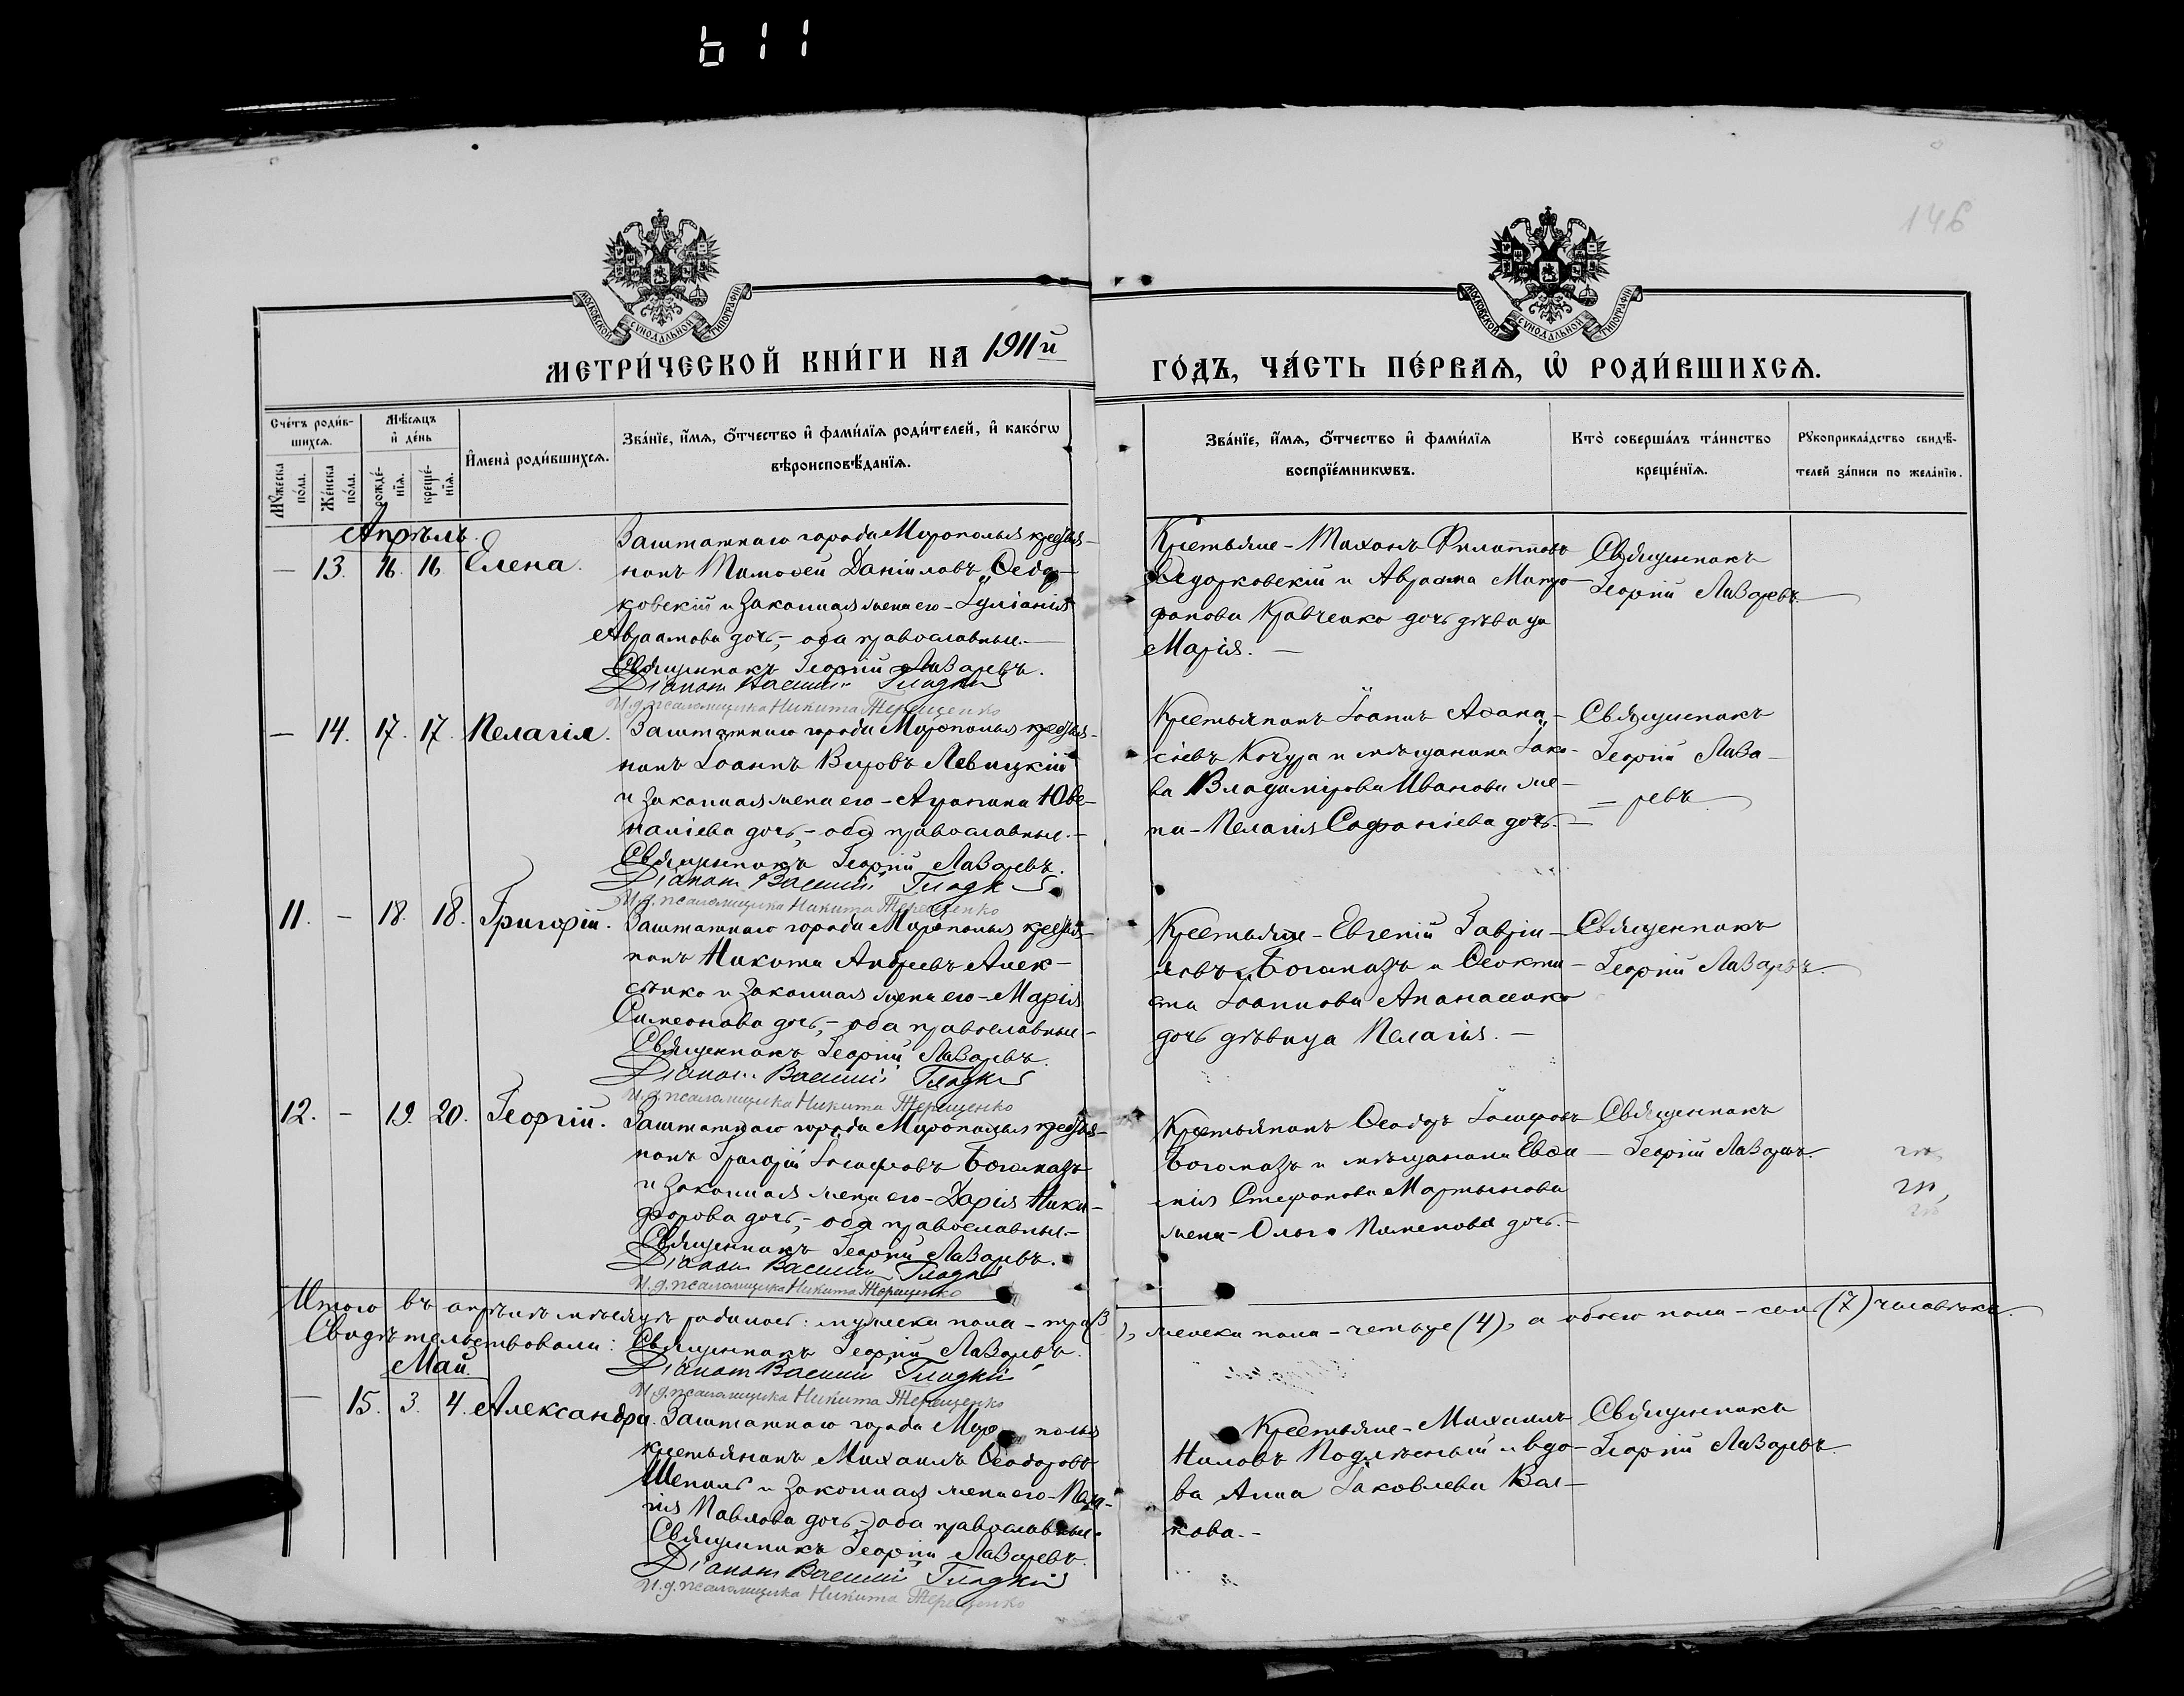 b11
146
МОСКОВСКОЙ СѴНОДАЛЬНОЙ ТИПОГРАФІИ
МОСКОВСКОЙ СѴНОДАЛЬНОЙ ТИПОГРАФІИ
МЕТРИ́ЧЕСКОЙ КНИ́ГИ НА 1911й ГО́ДЪ, ЧА́СТЬ ПЕ́РВАѦ, Ѿ РОДИ́ВШИХСѦ.
Сче́тъ роди́в-
шихсѧ.
Мꙋжеска по́ла.
Же́нска по́ла.
Мѣ́сѧцъ
и҆ де́нь
рожде́-
нїѧ.
креще́-
нїѧ.
И҆мена̀ роди́вшихсѧ.
Зва́нїе, и҆́мѧ, ѻ҆́тчество и҆ фами́лїѧ роди́телей, и҆ како́гѡ
вѣроисповѣ́данїѧ.
Зва́нїе, и҆́мѧ, ѻ҆́тчество и҆ фами́лїѧ
воспрїе́мникѡвъ.
Кто̀ соверша́лъ та́инство
креще́нїѧ.
Рꙋкоприкла́дство свидѣ́-
телей за́писи по жела́нїю.
Апрѣль.
— 13. 16. 16. Елена.
Заштатнаго города Мирополья крестья-
нинъ Тимоѳей Даніиловъ Ѳедор-
ковскій и законная жена его – Іуліанія
Авраамова дочь, – оба православные. —
Священникъ Георгій Лазаревъ.
Діаконъ Василій Гладкій
И.д. псаломщика Никита Терещенко
Крестьяне – Тихонъ Филипповъ
Ѳедорковскій и Авраама Митро-
фанова Кравченко дочь дѣвица
Марія. —
Священникъ
Георгій Лазаревъ.
— 14. 17. 17. Пелагія.
Заштатнаго города Мирополья крестья-
нинъ Іоаннъ Левицкій
и законная жена его – Агрипина Юве-
наліева дочь, – оба православные. –
Священникъ Георгій Лазаревъ.
Діаконъ Василій Гладкій
И.д. псаломщика Никита Терещенко
Крестьянинъ Іоаннъ Аѳана-
сіевъ Кочура и мѣщанина Іако-
ва Владимірова Иванова же-
на – Пелагія Софоніева дочь. —
Священникъ
Георгій Лаза-
= ревъ
11. – 18. 18. Григорій.
Заштатнаго города Мирополья крестья-
нинъ Никита Андреевъ Алек-
сѣнко и законная жена его – Марія
Симеонова дочь, – оба православные. –
Священникъ Георгій Лазаревъ.
Діаконъ Василій Гладкій
И.д. псаломщика Никита Терещенко
Крестьяне – Евгеній Гаврии-
ловъ Богомазъ и Ѳеокти-
ста Іоаннова Апанасенко
дочь дѣвица Пелагія. —
Священникъ
Георгій Лазаревъ.
12. – 19. 20. Георгій.
Заштатнаго города Мирополья крестья-
нинъ Григорій Іосифовъ Богомазъ
и законная жена его – Дарія Ники-
форова дочь, – оба православные. –
Священникъ Георгій Лазаревъ.
Діаконъ Василій Гладкій
И.д. псаломщика Никита Терещенко
Крестьянинъ Ѳеодоръ Іосифовъ
Богомазъ и мѣщанина Евѳи-
мія Стефанова Мартынова
жена – Ольга Пименова дочь. –
Священникъ
Георгій Лазаревъ.
Итого въ апрѣлѣ мѣсяцѣ родилось: мужеска пола – три (3), женска пола – четыре (4), а обоего пола – семь (7) человѣкъ.
Свидѣтельствовали: Священникъ Георгій Лазаревъ.
Діаконъ Василій Гладкій
И.д. псаломщика Никита Терещенко
Май.
— 15. 3. 4. Александра.
Заштатнаго города Мирополья
крестьянинъ Михаилъ Ѳеодоровъ
Шепиль и законная жена его – Пела-
гія Павлова дочь, – оба православные.
Священникъ Георгій Лазаревъ.
Діаконъ Василій Гладкій
И.д. псаломщика Никита Терещенко
Крестьяне – Михаилъ
Ниловъ и вдо-
ва Анна Іаковлева Вол-
кова. –
Священникъ
Георгій Лазаревъ.